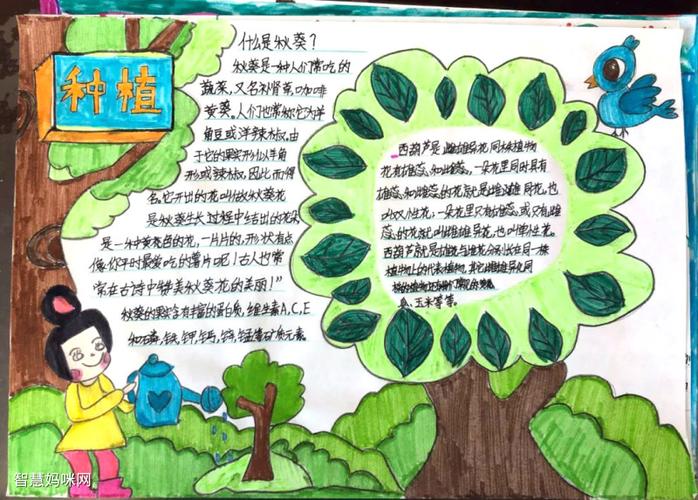 种植
什么是秋葵？
秋葵是一种人们常吃的
蔬菜，又名补肾菜，咖啡
黄葵。人们也常称它为羊
角豆或洋辣椒。由
于它的果实形似羊角
形或辣椒，因此而得
名。它开出的花叫做秋葵花
是秋葵生长过程中结出的花朵
是一种黄色的花，一片片的，形状有点
像你平时最爱吃的薯片呢！古人也常
常在古诗中赞美秋葵花的美丽！
秋葵的果实含丰富的蛋白质，维生素A,C,E
和磷，铁，钾，钙，锌，锰等矿质元素
西葫芦是雌雄异花同株植物
花有雄蕊和雌蕊，一朵花里同时具有
雄蕊和雌蕊的花就是雌雄同花，也
叫双性花，一朵花里只有雄蕊或只有雌
蕊的花就叫雌雄异花，也叫单性花。
西葫芦就是雄花与雌花分别长在同一株
植物上的代表植物。其它雌雄异花同
株的植物还有
瓜、玉米等等。
智慧妈咪网